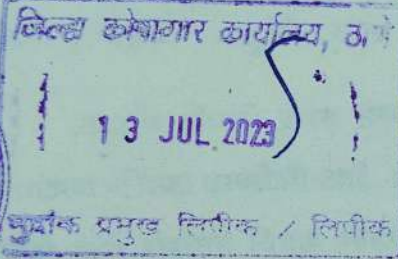 जिल्हा कोषागार कार्यालय, ठाणे
13 JUL 2023
मुद्रांक प्रमुख लिपीक / लिपीक